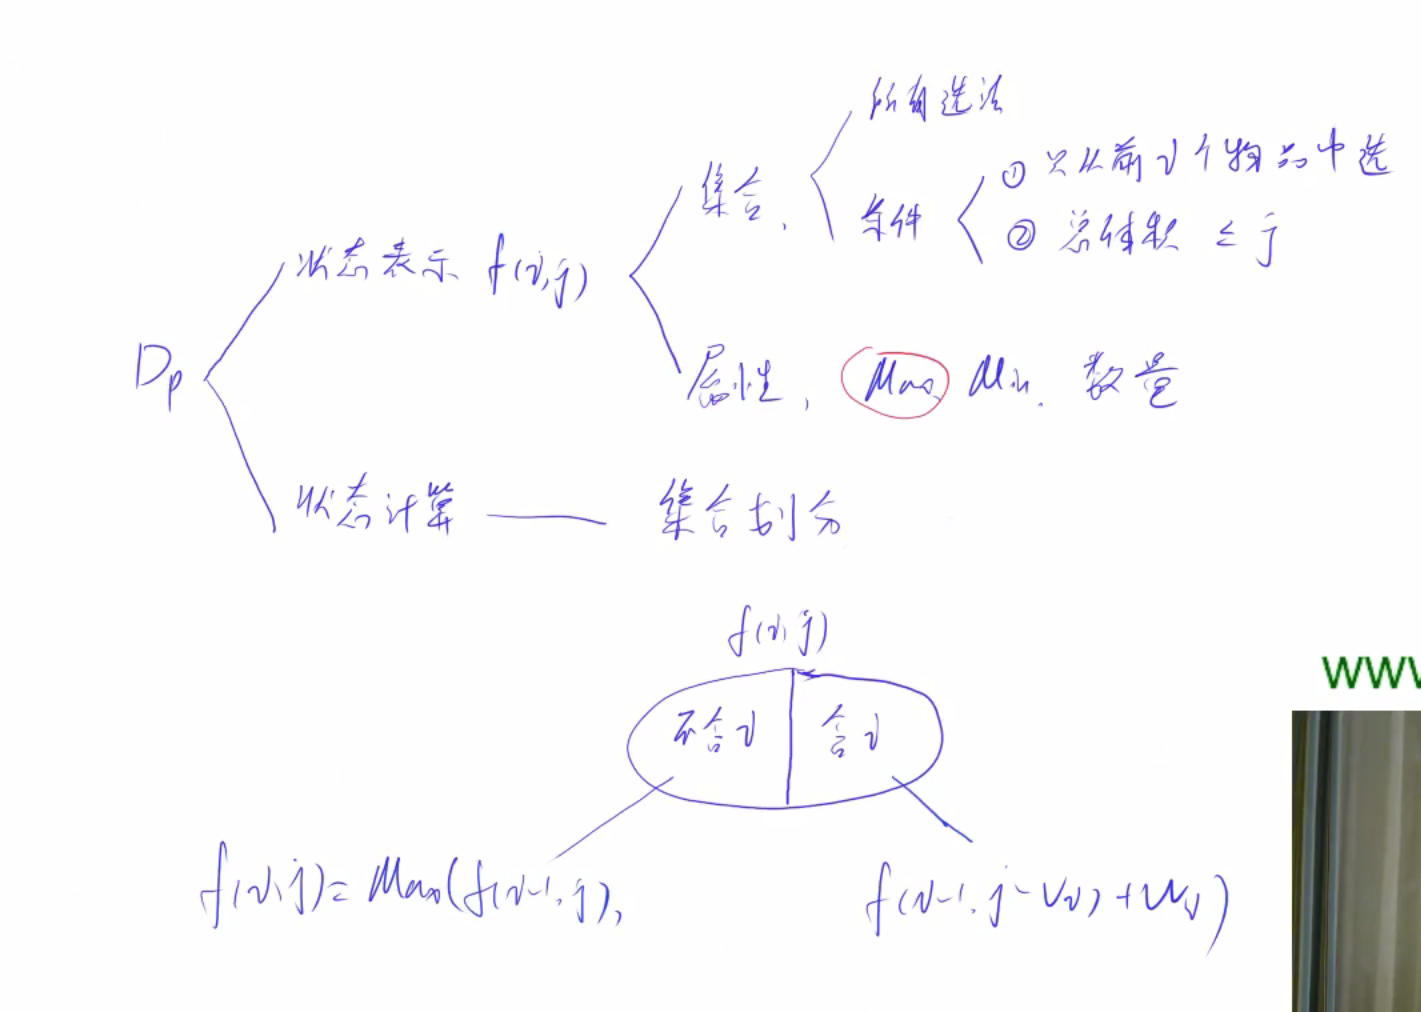 所有选法
集合，
① 只从前i个物品中选
条件
② 总体积 ≤ j
状态表示 f(i,j)
Dp
属性， Max Min. 数量
状态计算 —— 集合划分
f(i,j)
不含i 含i
f(i,j)= Max(f(i-1,j), f(i-1, j-vi)+wi)
WWW